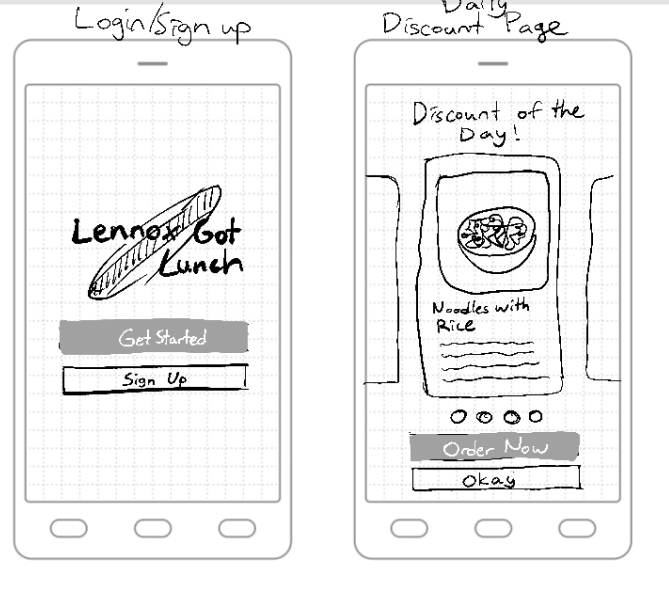 Login/Sign up
Lennox Got
Lunch
Get Started
Sign Up
Daily
Discount Page
Discount of the
Day!
Noodles with
Rice
Order Now
Okay